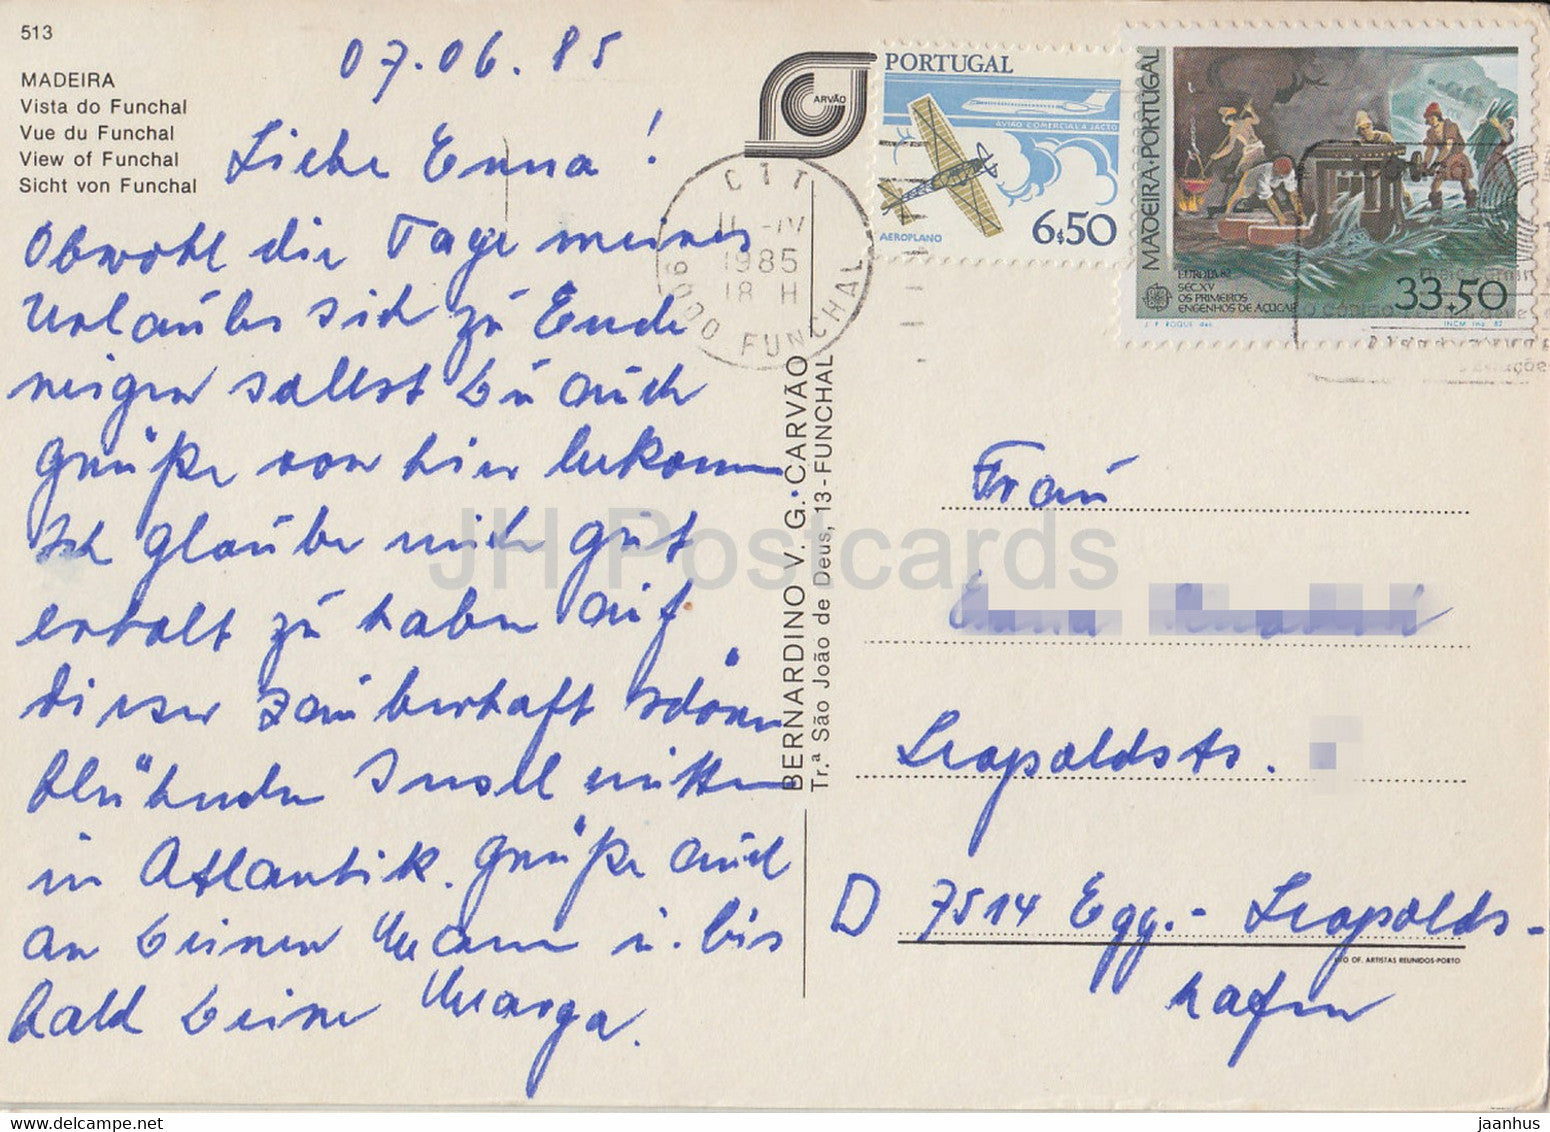 513
MADEIRA
Vista do Funchal
Vue du Funchal
View of Funchal
Sicht von Funchal
07.06.85
Liebe Enna!
Obwohl die Tage meines
Urlaubs sich zu Ende
neigen sollst Du auch
Grüße von hier bekomm
Ich glaube mich gut
erholt zu haben auf
dieser zauberhaft schönen
blühenden Insel mitten
in Atlantik. Grüße auch
an Deinen Mann u. bis
bald Deine Marga.
CARVÃO
CTT
11 -IV
1985
18 H
9000 FUNCHAL
BERNARDINO V. G. CARVÃO
Tr.ª São João de Deus, 13-FUNCHAL
PORTUGAL
AVIÃO COMERCIAL A JACTO
AEROPLANO
6$50
MADEIRA-PORTUGAL
EUROPA 82
SEC. XV
OS PRIMEIROS
ENGENHOS DE AÇUCAR
33$50
INCM
82
Frau
Leopoldstr.
D 7514 Egg.-Leopolds-
hafen
OF. ARTISTAS REUNIDOS-PORTO
JH Postcards
jaanhus